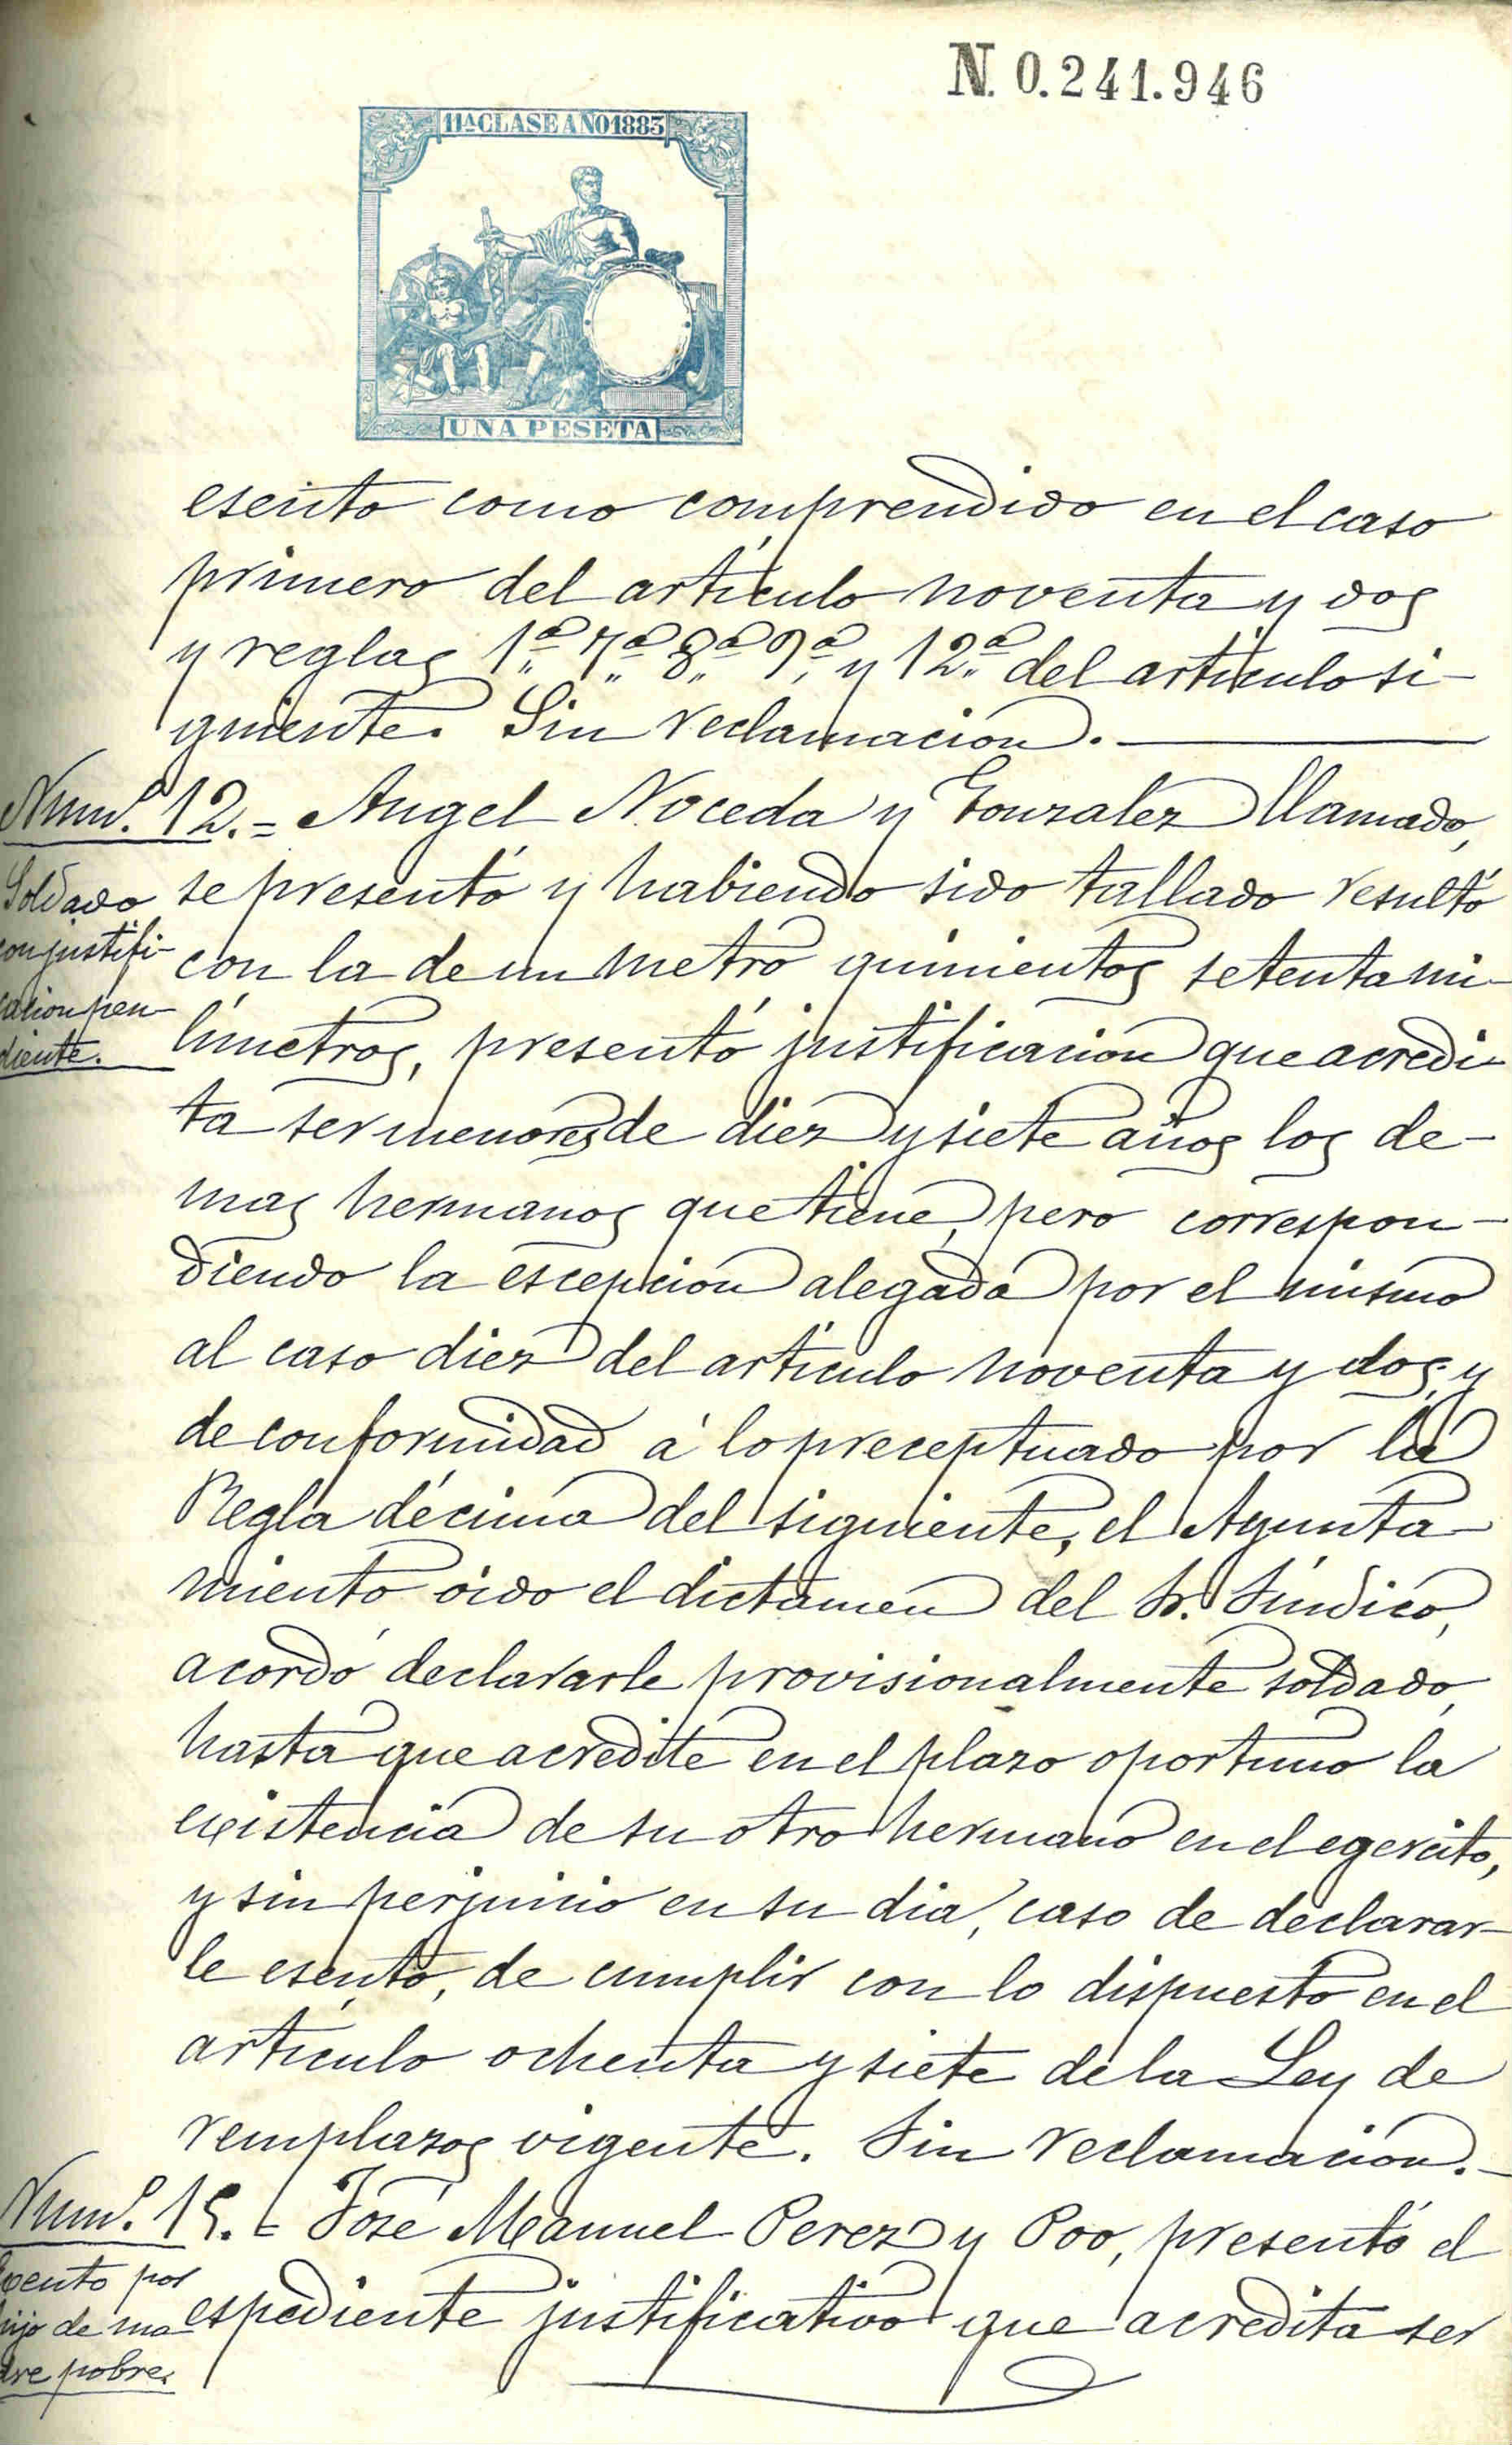 N. 0.241.946
11ª CLASE AÑO 1883
UNA PESETA
esento como comprendido en el caso
primero del artículo noventa y dos
y reglas 1ª 7ª 8ª 9ª y 12ª del artículo si-
guiente. Sin reclamacion.
Numº 12.= Angel Noceda y Gonzalez llamado,
Soldado
con justifi-
cacion pen-
diente.
se presentó y habiendo sido tallado resultó
con la de un metro quinientos setenta mi-
límetros, presentó justificacion que acredi-
ta ser menores de diez y siete años los de-
mas hermanos que tiene, pero correspon-
diendo la escepcion alegada por el mismo
al caso diez del artículo noventa y dos, y
de conformidad á lo preceptuado por la
Regla décima del siguiente, el Ayunta-
miento oido el dictamen del Sr. Síndico,
acordó declararle provisionalmente soldado,
hasta que acredite en el plazo oportuno la
existencia de su otro hermano en el egercito,
y sin perjuicio en su dia, caso de declarar-
le esento, de cumplir con lo dispuesto en el
artículo ochenta y siete de la Ley de
remplazos vigente. Sin reclamacion.-
Numº 15.= José Manuel Perez y Poo, presentó el
Exento por
hijo de ma-
dre pobre.
espediente justificativo que acredita ser